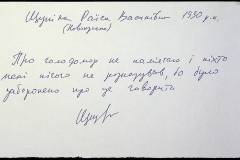 Раїса Василівна 1930 р.н.
Про голодомор не пам'ятаю і ніхто
мені нічого не розказував, бо було
заборонено про це говорить